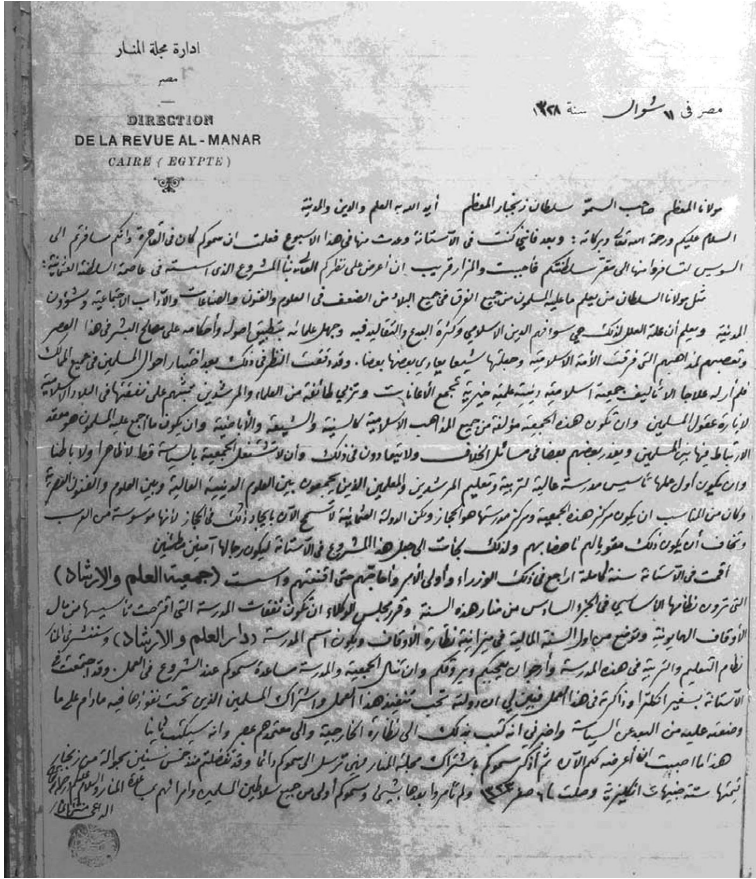 ادارة مجلة المنار
مصر
DIRECTION
DE LA REVUE AL-MANAR
CAIRE (EGYPTE)
مصر فى ١١ شوال سنة ١٣٢٨
مولانا المعظم صاحب السمو سلطان زنجبار المعظم أيد الله به العلم والدين والمدنية
السلام عليكم ورحمة الله تعالى وبركاته : وبعد فانني كنت فى الآستانة وعدت منها فى هذا الاسبوع فعلمت ان سموكم كان فى القاهرة وانكم سافرتم الى
السويس لتسافروا منها الى مقر سلطنتكم فأحببت والمزار قريب ان أعرض على نظركم العالي نبأ المشروع الذى أسسته فى عاصمة السلطنة العثمانية :
مثل مولانا السلطان من يعلم ما عليه المسلمون من جميع الفرق فى جميع البلاد من الضعف فى العلوم والفنون والصناعات والآداب الاجتماعية وشؤون
المدنية ويعلم أن علة العلل لذلك هي سوء فهم الدين الاسلامي وكثرة البدع والتقاليد فيه وجهل علمائه بتطبيق أصوله وأحكامه على مصالح البشر فى هذا العصر
وتعصبهم لمذاهبهم التى فرقت الأمة الاسلامية وجعلتها شيعا يعادي بعضها بعضا . وقد دققت النظر فى ذلك بعد اختبار احوال المسلمين فى جميع الممالك
فلم أر له علاجا الا تأليف جمعية اسلامية دينية علمية خيرية تجمع الاعانات وتربي طائفة من العلماء والمرشدين تبثهم على نفقتها فى البلاد الاسلامية
لانارة عقول المسلمين وان تكون هذه الجمعية مؤلفة من جميع المذاهب الاسلامية كالسنية والشيعية والأباضية وان يكون ما اجمع عليه المسلمون هو معقد
الارتباط فيها بين المسلمين ويعذر بعضهم بعضا فى مسائل الخلاف ولا يتعادون فى ذلك وأن لا تشتغل الجمعية بالسياسة قط لا ظاهرا ولا باطنا
وان يكون أول عملها تأسيس مدرسة عالية لتربية وتعليم المرشدين والمعلمين الذين يجمعون بين العلوم الدينية العالية وبين العلوم والفنون العصرية
وكان من المناسب ان يكون مركز هذه الجمعية ومركز مدرستها هو الحجاز ولكن الدولة العثمانية لا تسمح الآن بإيجاد ذلك فى الحجاز لأنها موسوسة من العرب
وتخاف أن يكون ذلك مقويا لهم ناهضا بهم ولذلك لجأت الى جعل هذا المشروع فى الآستانة ليكون رجالها آمنين مطمئنين
أقمت فى الآستانة سنة كاملة اراجع فى ذلك الوزراء وأولى الأمر وأحاجهم حتى اقنعتهم وأسست (جمعية العلم والارشاد)
التى ترون نظامها الأساسي فى الجزء السادس من منار هذه السنة وقرر مجلس الوكلاء ان تكون نفقات المدرسة التى اقترحت تأسيسها من مال
الأوقاف الهمايونية وتوضع من اول السنة المالية فى ميزانية نظارة الأوقاف ويكون اسم المدرسة (دار العلم والارشاد) وسننشر فى المنار
نظام التعليم والتربية فى هذه المدرسة وأرجو ان يعجبكم ويروقكم وان تنال الجمعية والمدرسة مساعدة سموكم عند الشروع فى العمل . وقد اجتمعت فى
الآستانة بسفير انكلترا وذاكرته فى هذا العمل فبين لي ان دولته تحب تنفيذ هذا العمل واشتراك المسلمين الذين تحت نفوذها فيه ما دام على ما
وضعته عليه من البعد عن السياسة واخبرني انه كتب بذلك الى نظارة الخارجية والى معتمدهم بمصر وانه سيكتب
هذا ما احببت ان أعرضه لكم الآن ثم أذكر سموكم باشتراك مجلة المنار فهي ترسل الى سموكم دائما وقد تفضلتم منذ خمس سنين بحوالة من زنجبار
قيمتها ستة جنيهات انكليزية وصلت فى ٦ صفر ١٣٢٣ ولم تأمروا بعدها بشيء وسموكم أولى من جميع سلاطين المسلمين وامرائهم المنار والسلام عليكم